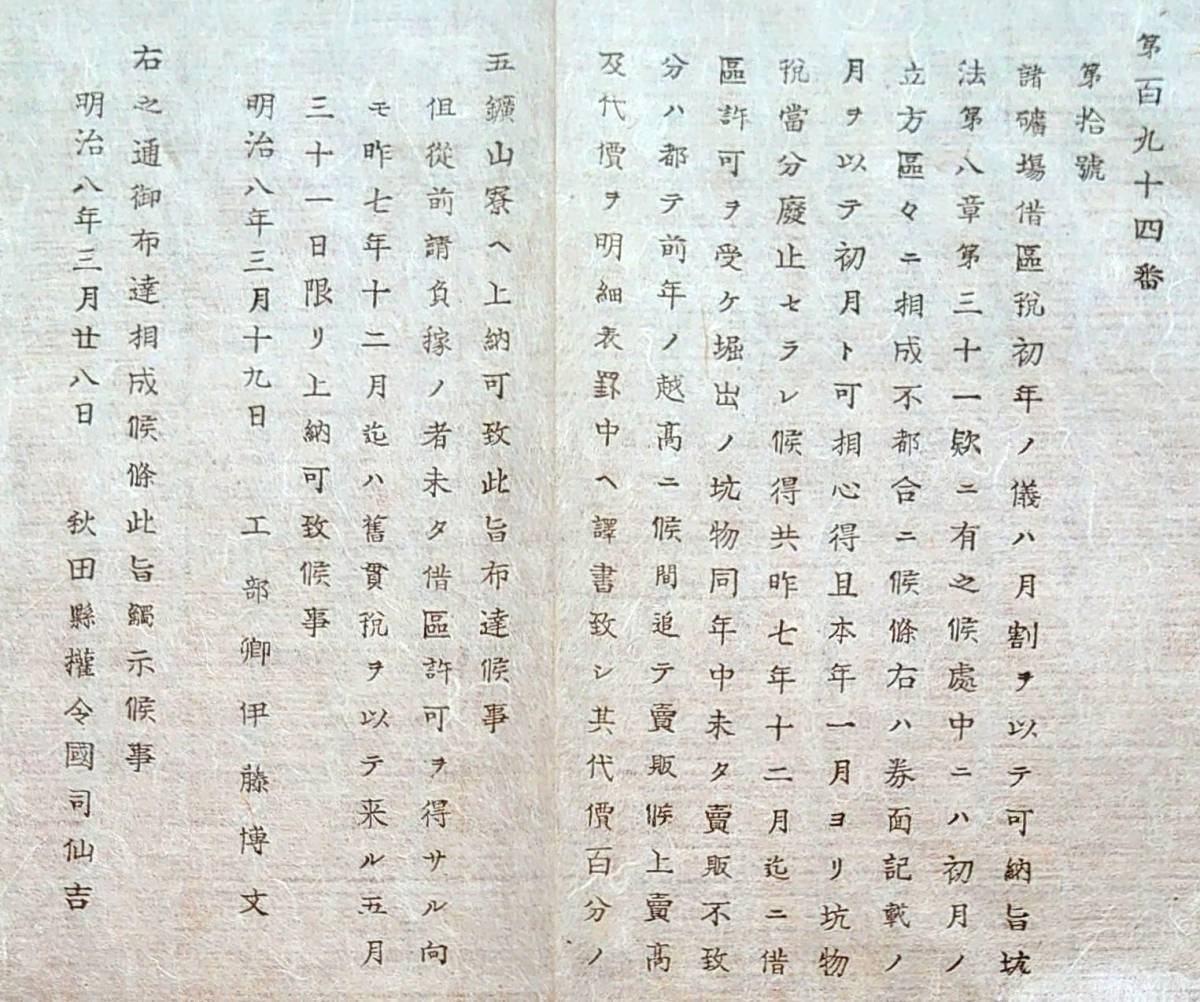 第百九十四番
第拾號
諸礦塲借區稅初年ノ儀ハ月割ヲ以テ可納旨坑
法第八章第三十一欵ニ有之候處中ニハ初月ノ
立方區々ニ相成不都合ニ候條右ハ券面記載ノ
月ヲ以テ初月ト可相心得且本年一月ヨリ坑物
稅當分廢止セラレ候得共昨七年十二月迄ニ借
區許可ヲ受ケ堀出ノ坑物同年中未タ賣販不致
分ハ都テ前年ノ越髙ニ候間追テ賣販候上賣髙
及代價ヲ明細表罫中ヘ譯書致シ其代價百分ノ
五鑛山寮ヘ上納可致此旨布達候事
但從前請負稼ノ者未タ借區許可ヲ得サル向
モ昨七年十二月迄ハ舊貫稅ヲ以テ来ル五月
三十一日限リ上納可致候事
明治八年三月十九日 工部卿伊藤博文
右之通御布達相成候條此旨觸示候事
明治八年三月廿八日 秋田縣權令國司仙吉